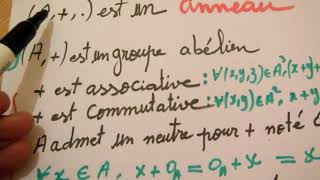 ,+,.) est un anneau
(A,+) est un groupe abélien
+ est associative: ∀(x,y,z)∈A³,(x+y)+
+ est Commutative: ∀(x,y)∈A², x+y
A admet un neutre pour + noté
∀x∈A, x+0_A=0_A+x=x